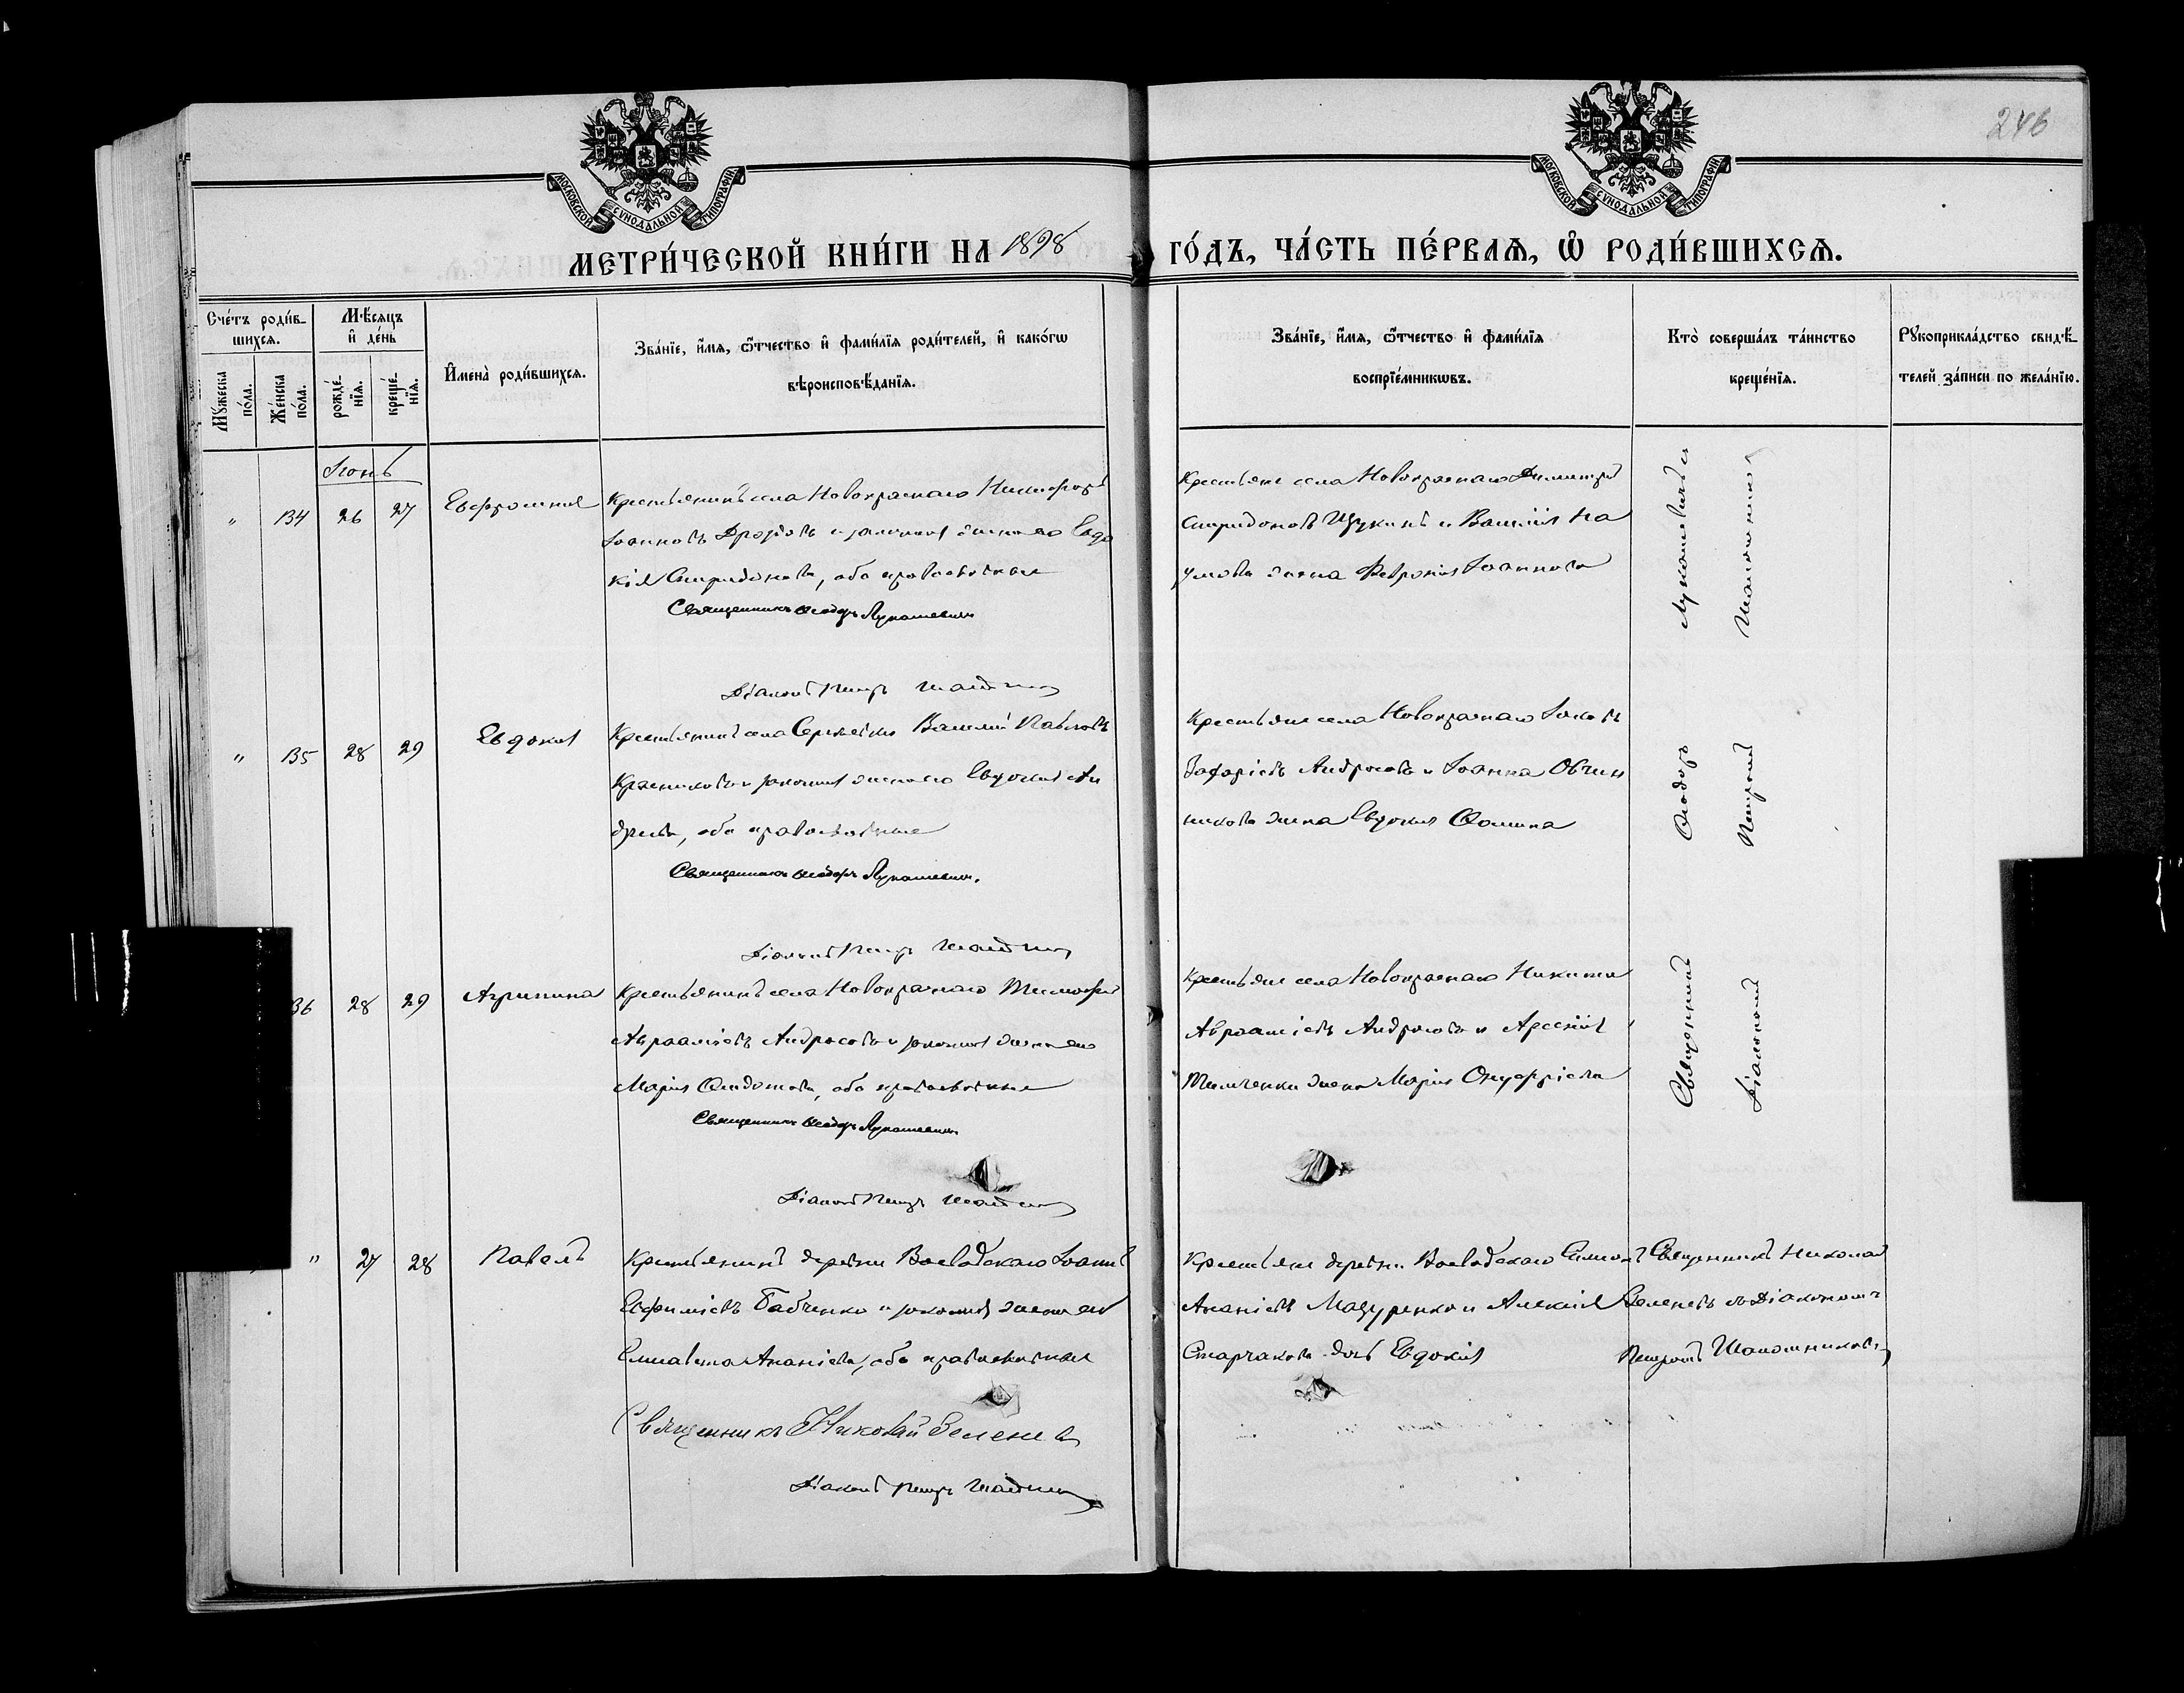 246
МОСКОВСКОЙ СѴНОДАЛЬНОЙ ТИПОГРАФІИ
МОСКОВСКОЙ СѴНОДАЛЬНОЙ ТИПОГРАФІИ
МЕТРИ́ЧЕСКОЙ КНИ́ГИ НА 1898 ГО́ДЪ, ЧА́СТЬ ПЕ́РВАѦ, Ѡ҆ РОДИ́ВШИХСѦ.
Сче́тъ роди́в-
шихсѧ.
Мꙋ́жеска
по́ла.
Же́нска
по́ла.
Мѣ́сѧцъ
и҆ де́нь
рожде́-
нїѧ.
креще́-
нїѧ.
И҆мена̀ роди́вшихсѧ.
Зва́нїе, и҆́мѧ, ѻ҆́тчество и҆ фами́лїѧ роди́телей, и҆ како́гѡ
вѣроисповѣ́данїѧ.
Зва́нїе, и҆́мѧ, ѻ҆́тчество и҆ фами́лїѧ
воспрїе́мникѡвъ.
Кто̀ соверша́лъ та́инство
креще́нїѧ.
Рꙋкоприкла́дство свидѣ́-
телей за́писи по жела́нїю.
Іюнь
" 134 26 27 Евфросинія
Крестьянинъ села Новокраснаго Никифоръ
Іоанновъ Дроздовъ и законная жена его Евдо
кія Спиридонова, оба православные
Священникъ Ѳеодоръ Лукашевичъ
Діаконъ Петръ
Крестьяне села Новокраснаго Димитрій
Спиридоновъ Щукинъ и Василія На
умова жена Февронія Іоаннова
" 135 28 29 Евдокія
Крестьянинъ села Василій Павловъ
Красниковъ и законная жена его Евдокія Ан
дреева, оба православные
Священникъ Ѳеодоръ Лукашевичъ.
Діаконъ Петръ
Крестьяне села Новокраснаго Іаковъ
Захаріевъ Андросовъ и Іоанна Овчин
никова жена Евдокія Ѳомина
36 28 29 Агрипина
Крестьянинъ села Новокраснаго Тимофей
Авраамиевъ Андросовъ и законная жена его
Марія Ѳедотова, оба православные
Священникъ Ѳеодоръ Лукашевичъ
Діаконъ Петръ
Крестьяне села Новокраснаго Никита
Авраамиевъ Андросовъ и Арсенія
Тимченки жена Марія Онуфріева
Священникъ Ѳеодоръ Лукашевичъ съ
Діакономъ Петромъ
" 27 28 Павелъ
Крестьянинъ деревни Воеводскаго Іоаннъ
Евфиміевъ Бабченко и законная жена его
Елисавета Ананіева, оба православные
Священникъ Николай Зеленевъ
Діаконъ Петръ
Крестьяне деревни Воеводскаго Симонъ
Ананіевъ Мазуренко и Алексія
Старчакова дочь Евдокія
Священникъ Николай
Зеленевъ съ Діакономъ
Петромъ Шапошниковымъ